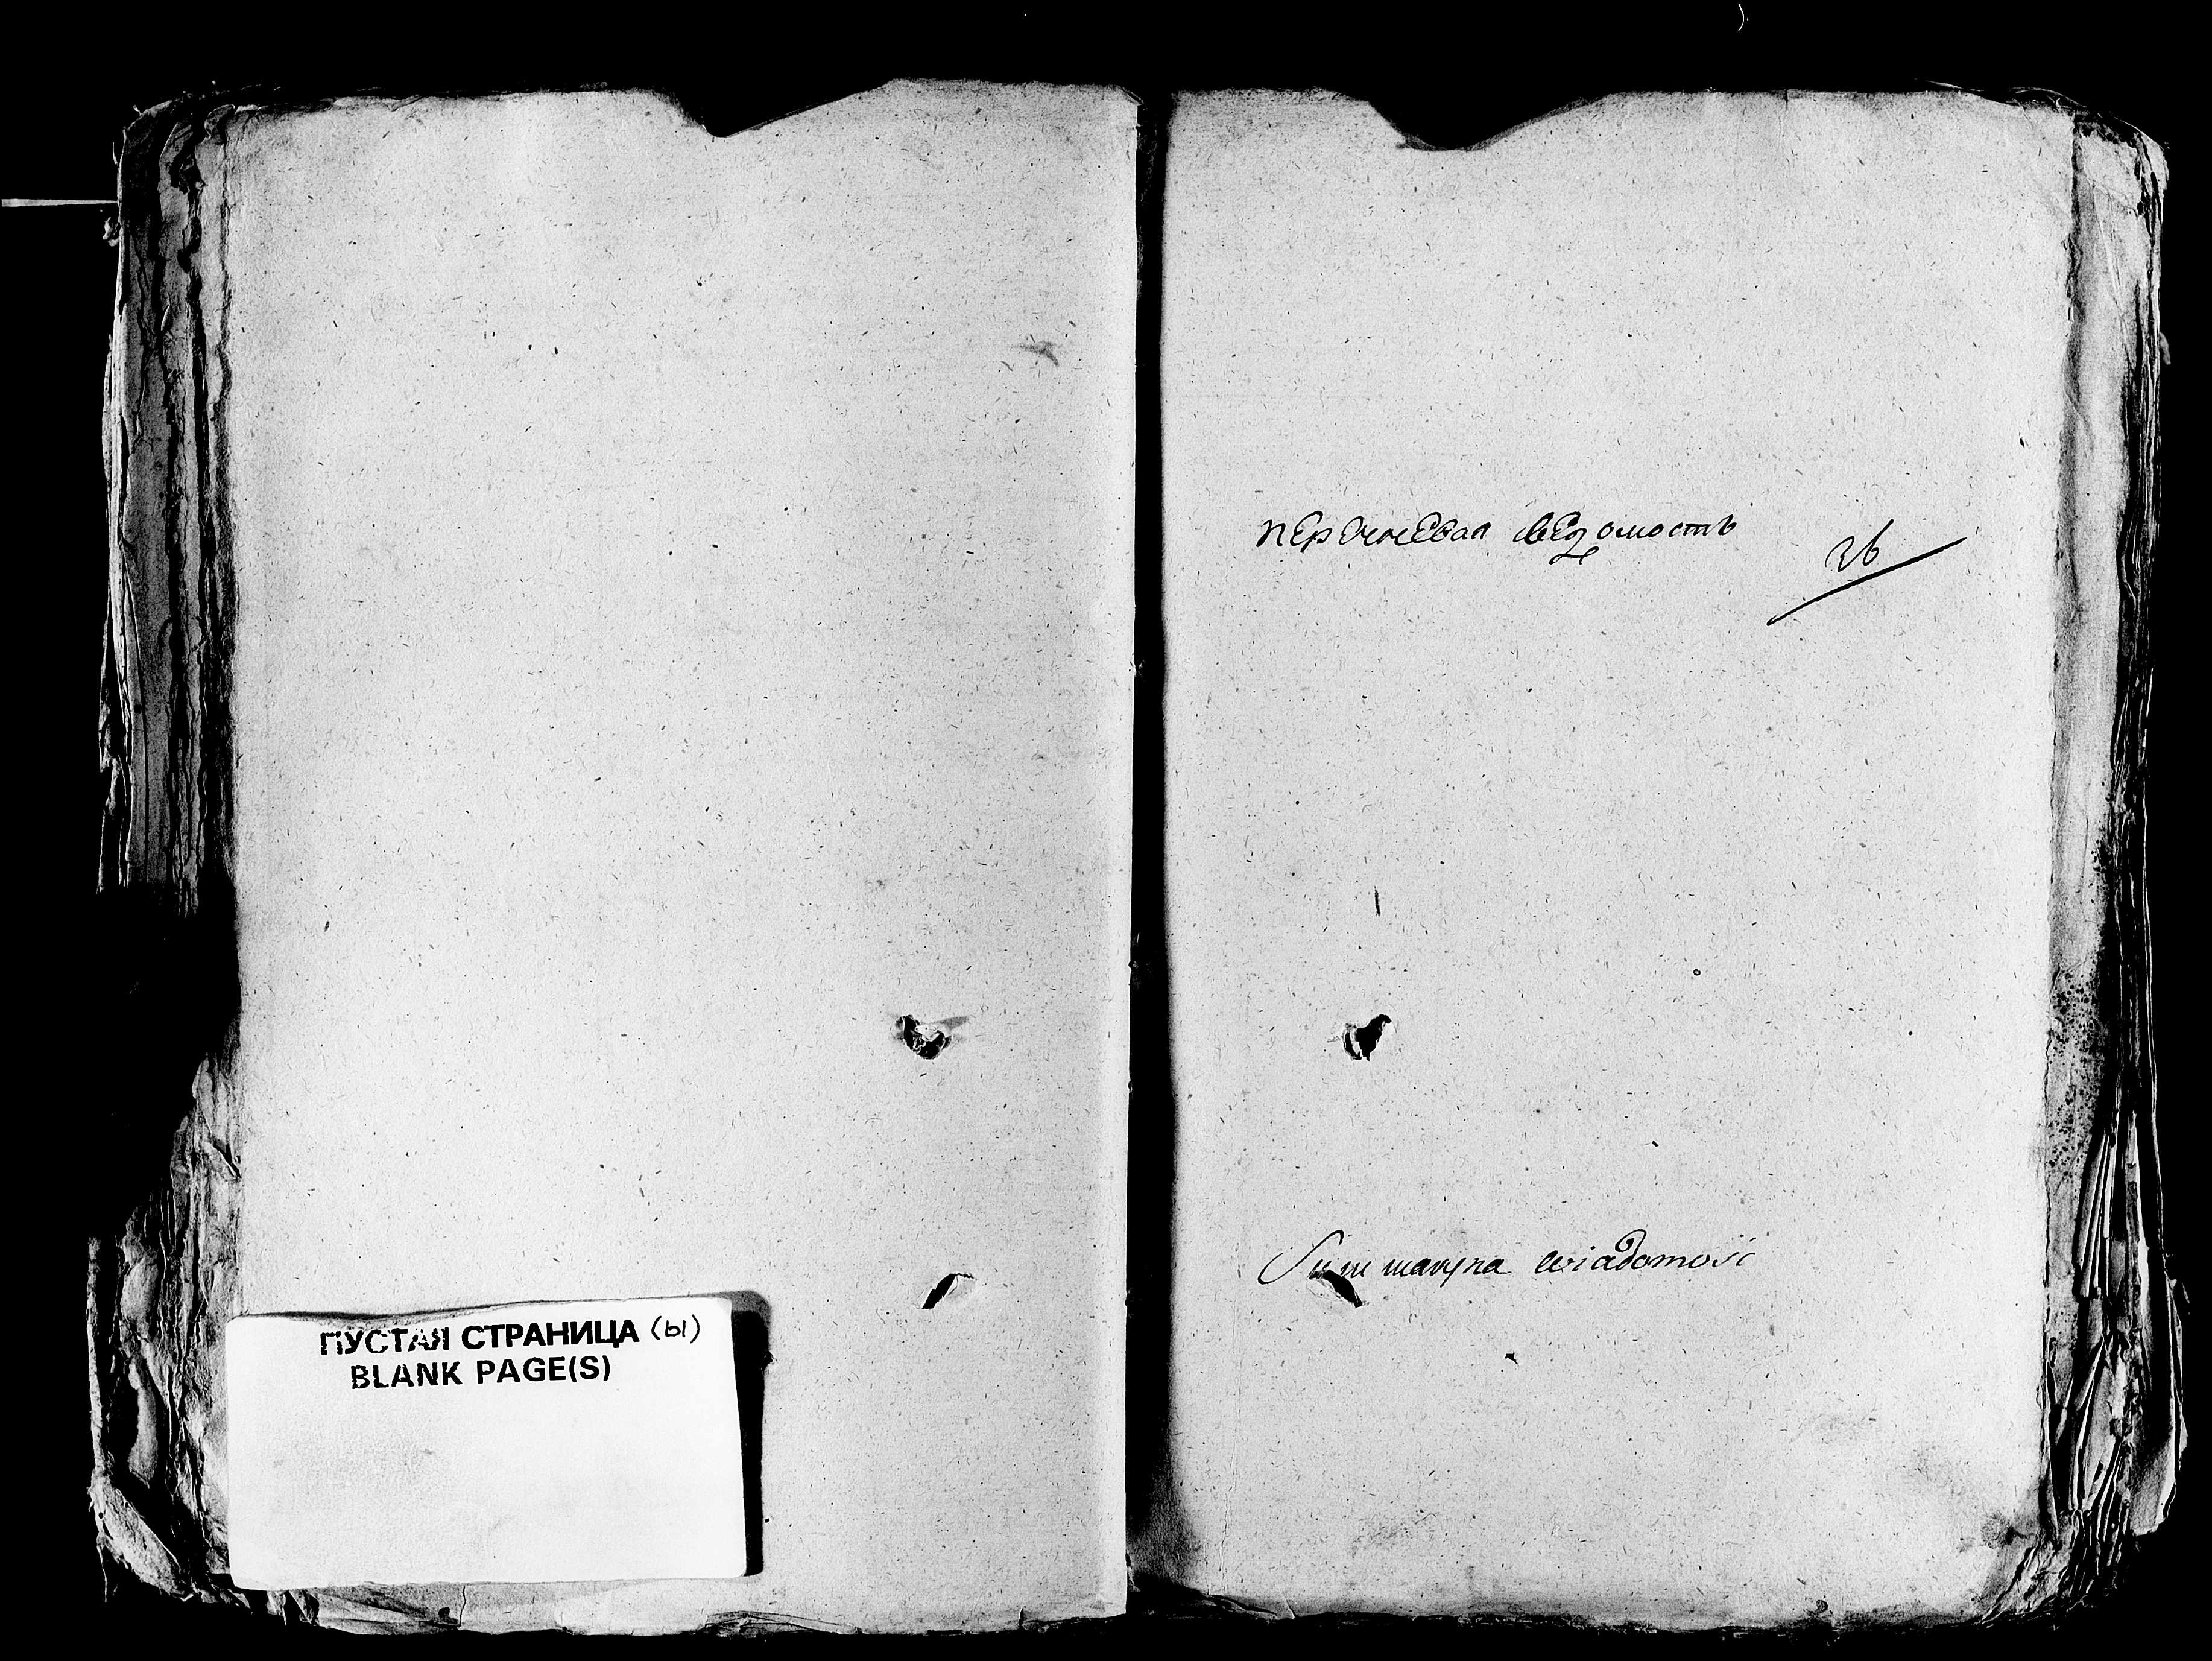 ПУСТАЯ СТРАНИЦА (ы)
BLANK PAGE(S)
перечневая ведомость
26
Summaryna wiadomość